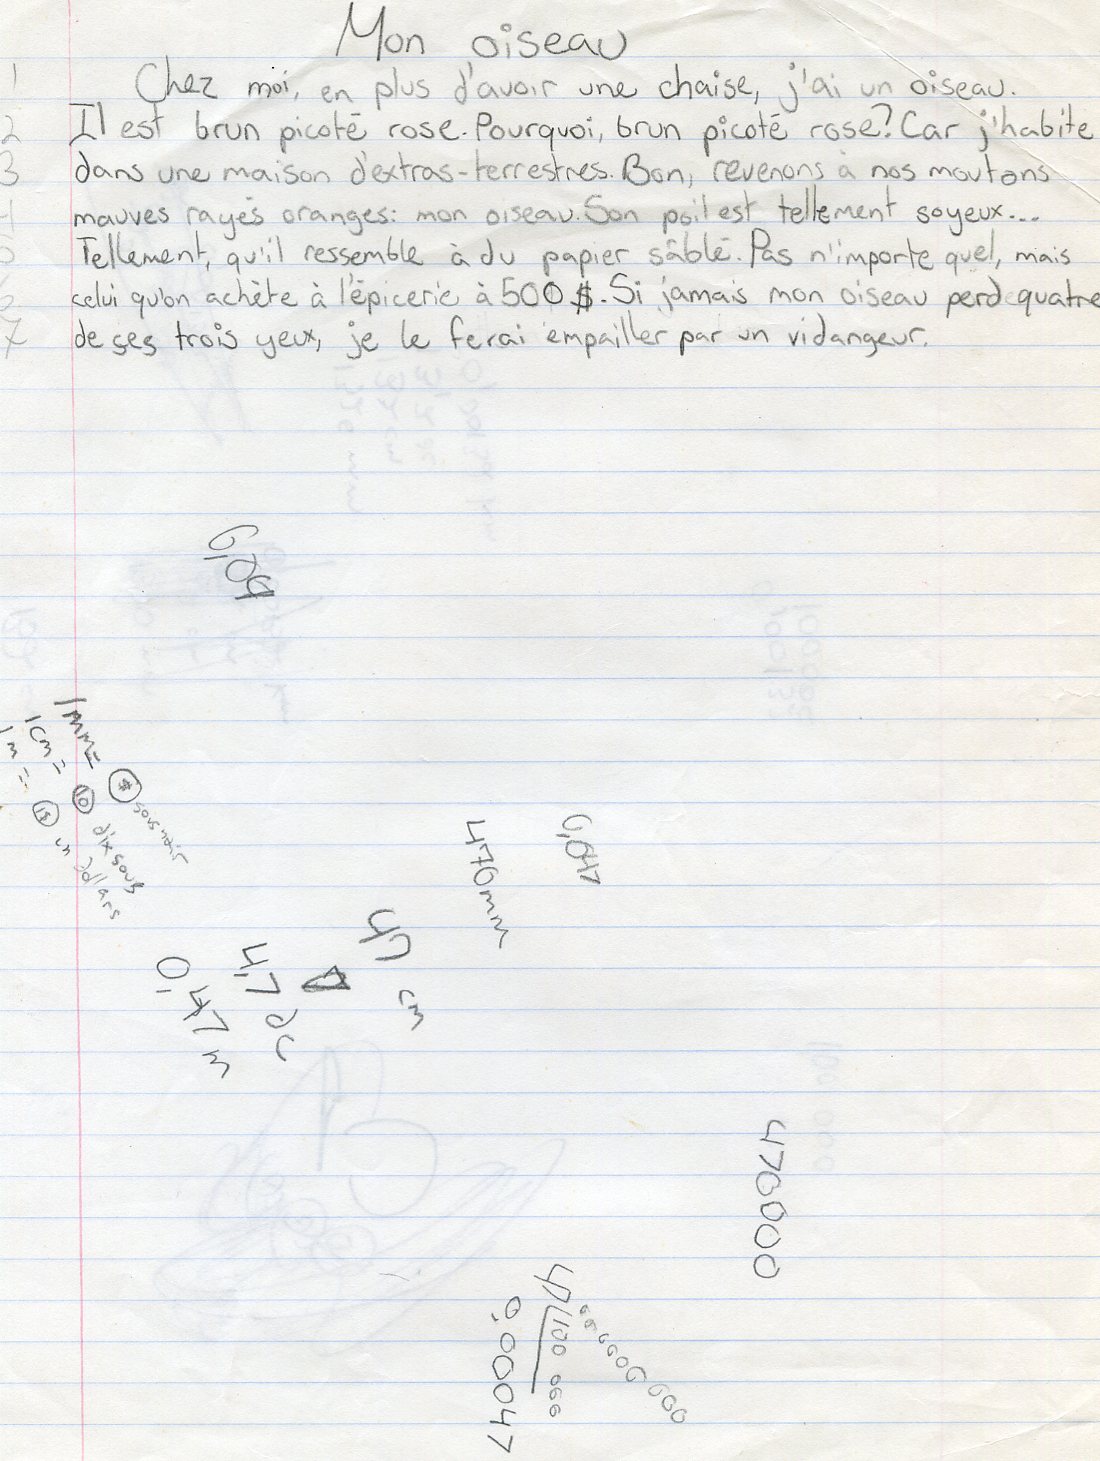 Mon oiseau
1 Chez moi, en plus d'avoir une chaise, j'ai un oiseau.
2 Il est brun picoté rose. Pourquoi, brun picoté rose? Car j'habite
3 dans une maison d'extras-terrestres. Bon, revenons à nos moutons
4 mauves rayés oranges: mon oiseau. Son poil est tellement soyeux...
5 Tellement, qu'il ressemble à du papier sâblé. Pas n'importe quel, mais
6 celui qu'on achète à l'épicerie à 500 $. Si jamais mon oiseau perd quatre
7 de ses trois yeux, je le ferai empailler par un vidangeur.
1 mm =
1 cm = 10 dix sous
1 m = 1$ un dollars
470 mm
0,047
47 cm
4,7 dc
0,47 m
470000
47
100 000
0,00047